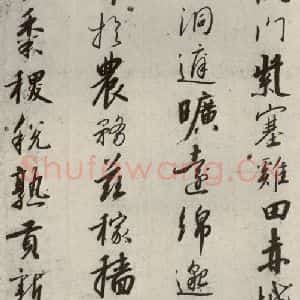 门紫塞雞田赤城
洞庭曠遠綿邈
於農務茲稼穡
黍稷稅熟貢新
Shufawang.CN